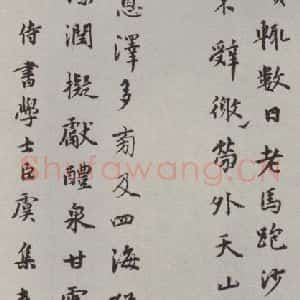 輒數日老馬跑沙
辭徼外天山
恩澤多及四海
潤擬獻醴泉甘露
侍書學士臣虞集
Shufawang.CN